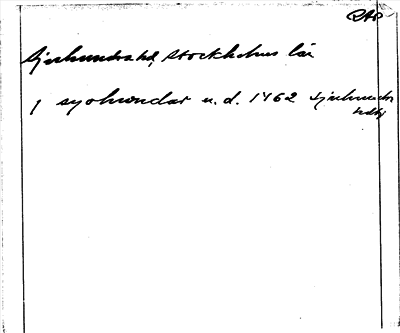 RAP
Sjuhundra hd, Stockholms län
J syohwndar u. d. 1462 Sjuhundra
hdbj